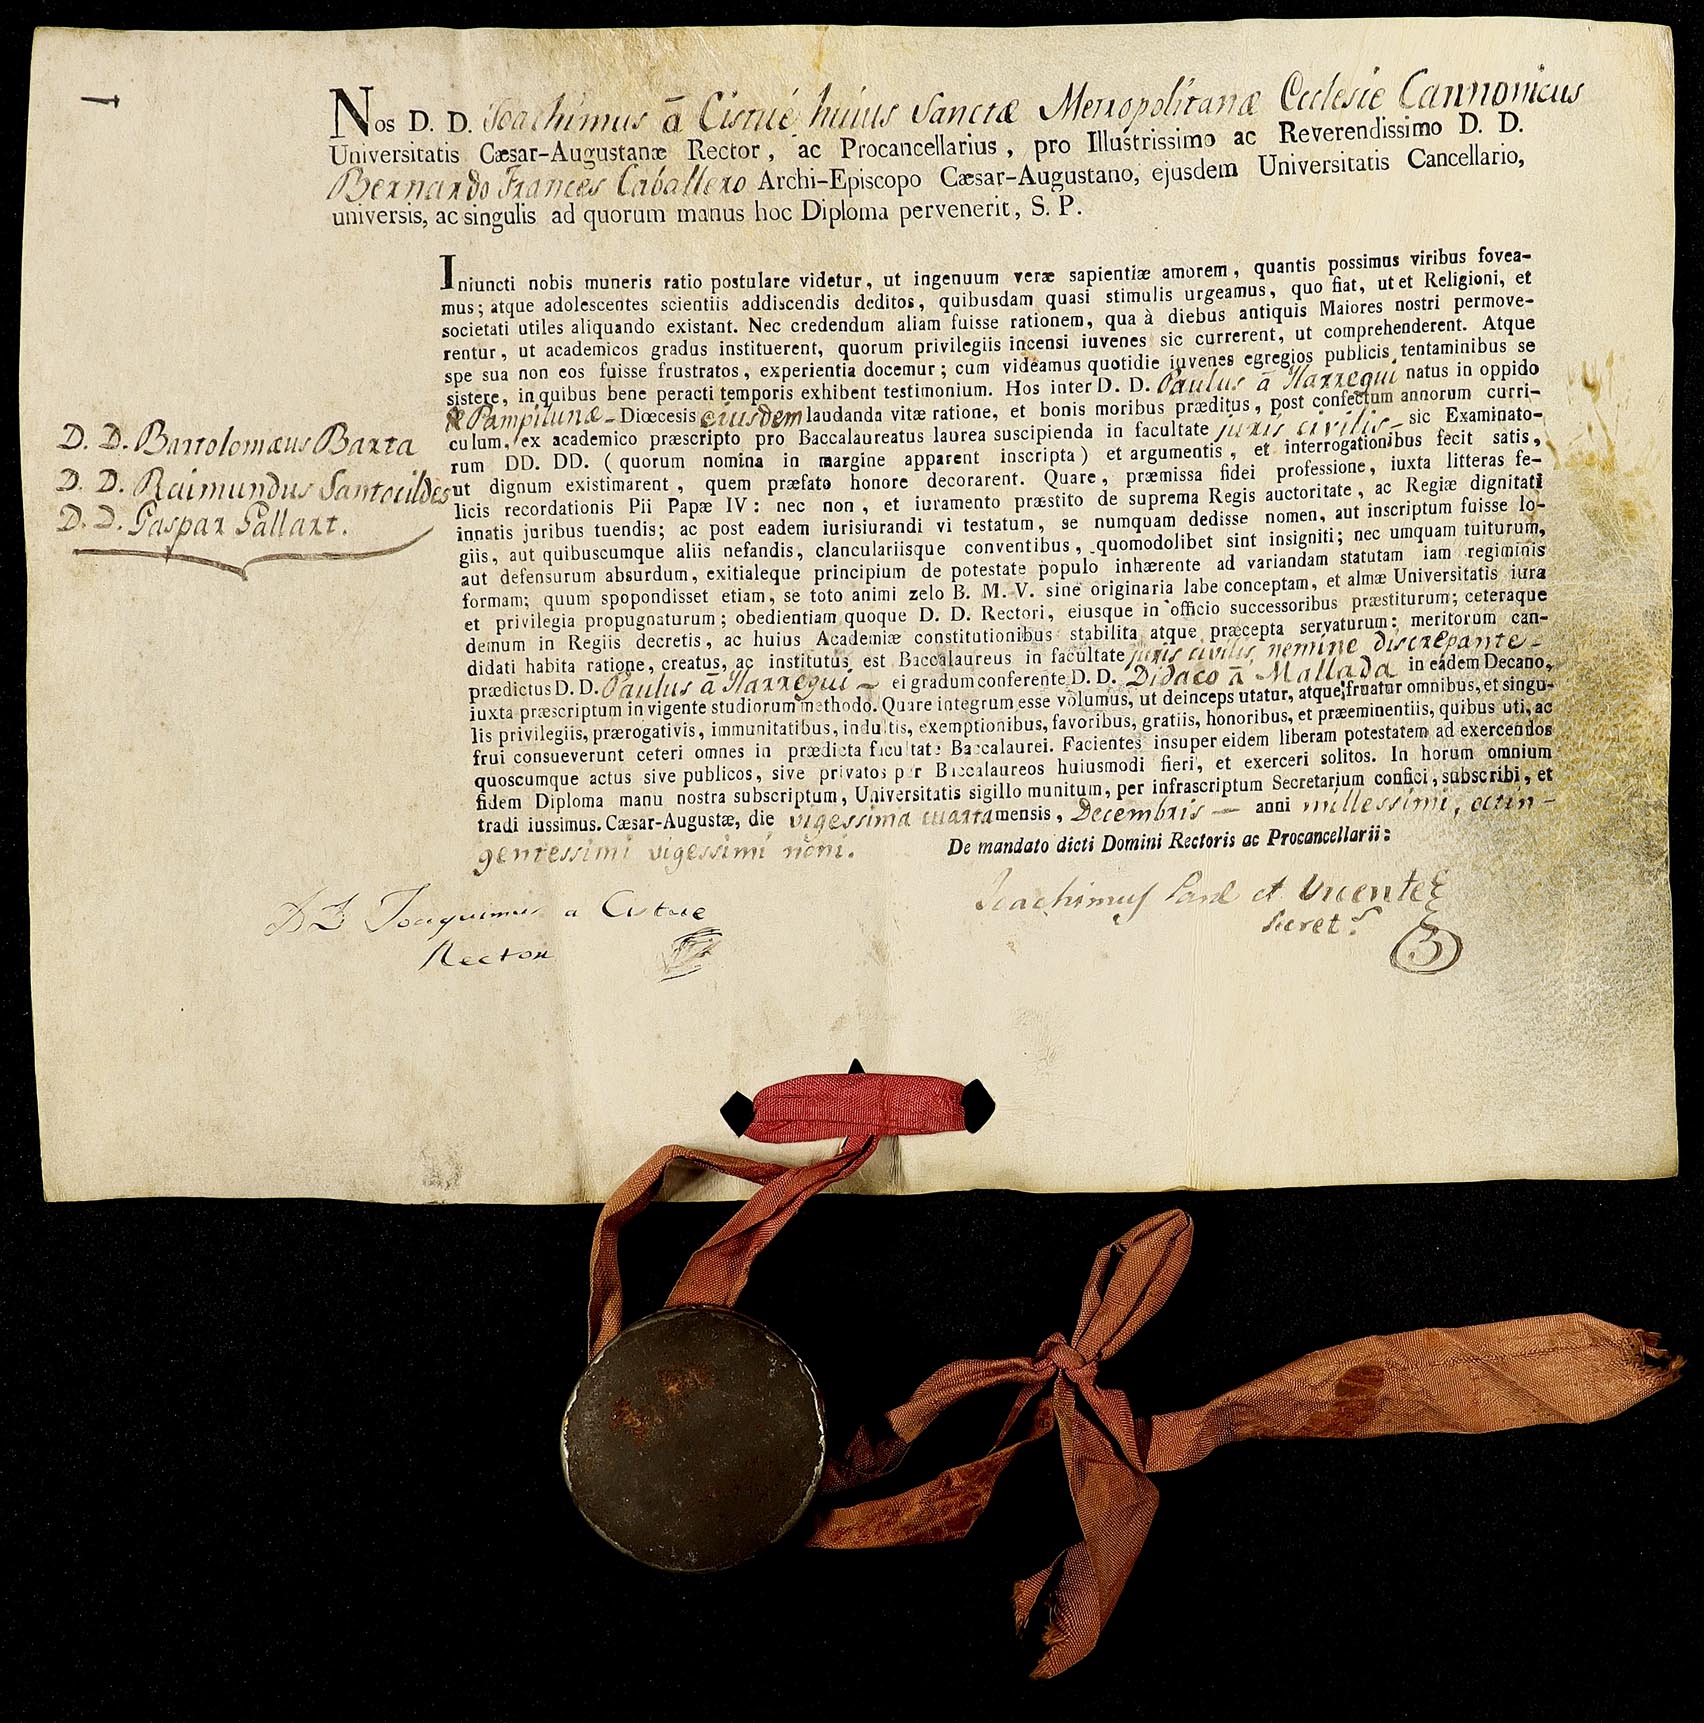 Nos D. D. Joachimus ā Cistué huius Sanctæ Metropolitanæ Ecclesie Cannonicus
Universitatis Cæsar-Augustanæ Rector, ac Procancellarius, pro Illustrissimo ac Reverendissimo D. D.
Bernardo Frances Caballero Archi-Episcopo Cæsar-Augustano, ejusdem Universitatis Cancellario,
universis, ac singulis ad quorum manus hoc Diploma pervenerit, S. P.
Iniuncti nobis muneris ratio postulare videtur, ut ingenuum veræ sapientiæ amorem, quantis possimus viribus fovea-
mus; atque adolescentes scientiis addiscendis deditos, quibusdam quasi stimulis urgeamus, quo fiat, ut et Religioni, et
societati utiles aliquando existant. Nec credendum aliam fuisse rationem, qua à diebus antiquis Maiores nostri permove-
rentur, ut academicos gradus instituerent, quorum privilegiis incensi iuvenes sic currerent, ut comprehenderent. Atque
spe sua non eos fuisse frustratos, experientia docemur; cum videamus quotidie iuvenes egregios publicis tentaminibus se
sistere, in quibus bene peracti temporis exhibent testimonium. Hos inter D. D. Paulus ā Ilarregui natus in oppido
de Pampilunæ - Diœcesis eiusdem laudanda vitæ ratione, et bonis moribus præditus, post confectum annorum curri-
culum, ex academico præscripto pro Baccalaureatus laurea suscipienda in facultate juris civilis - sic Examinato-
rum DD. DD. (quorum nomina in margine apparent inscripta) et argumentis, et interrogationibus fecit satis,
ut dignum existimarent, quem præfato honore decorarent. Quare, præmissa fidei professione, iuxta litteras fe-
licis recordationis Pii Papæ IV: nec non, et iuramento præstito de suprema Regis auctoritate, ac Regiæ dignitati
innatis juribus tuendis; ac post eadem iurisiurandi vi testatum, se numquam dedisse nomen, aut inscriptum fuisse lo-
giis, aut quibuscumque aliis nefandis, clanculariisque conventibus, quomodolibet sint insigniti; nec umquam tuiturum,
aut defensurum absurdum, exitialeque principium de potestate populo inhærente ad variandam statutam iam regiminis
formam; quum spopondisset etiam, se toto animi zelo B. M. V. sine originaria labe conceptam, et almæ Universitatis iura
et privilegia propugnaturum; obedientiam quoque D. D. Rectori, eiusque in officio successoribus præstiturum; ceteraque
demum in Regiis decretis, ac huius Academiæ constitutionibus stabilita atque præcepta servaturum: meritorum can-
didati habita ratione, creatus, ac institutus est Baccalaureus in facultate juris civilis, nemine discrepante -
prædictus D. D. Paulus ā Ilarregui - ei gradum conferente D. D. Didaco ā Mallada in eâdem Decano,
iuxta præscriptum in vigente studiorum methodo. Quare integrum esse volumus, ut deinceps utatur, atque fruatur omnibus, et singu-
lis privilegiis, prærogativis, immunitatibus, indultis, exemptionibus, favoribus, gratiis, honoribus, et præeminentiis, quibus uti, ac
frui consueverunt ceteri omnes in prædicta facultate Baccalaurei. Facientes insuper eidem liberam potestatem ad exercendos
quoscumque actus sive publicos, sive privatos per Baccalaureos huiusmodi fieri, et exerceri solitos. In horum omnium
fidem Diploma manu nostra subscriptum, Universitatis sigillo munitum, per infrascriptum Secretarium confici, subscribi, et
tradi iussimus. Cæsar-Augustæ, die vigessima cuarta mensis, Decembris - anni millessimi, octin-
gentessimi vigessimi noni.
De mandato dicti Domini Rectoris ac Procancellarii:
D. D. Bartolomæus Barta
D. D. Raimundus Santocildes
D. D. Gaspar Gallart.
DD Joaquimus a Cistue
Rector
Joachimus et Vicente
Secret.s